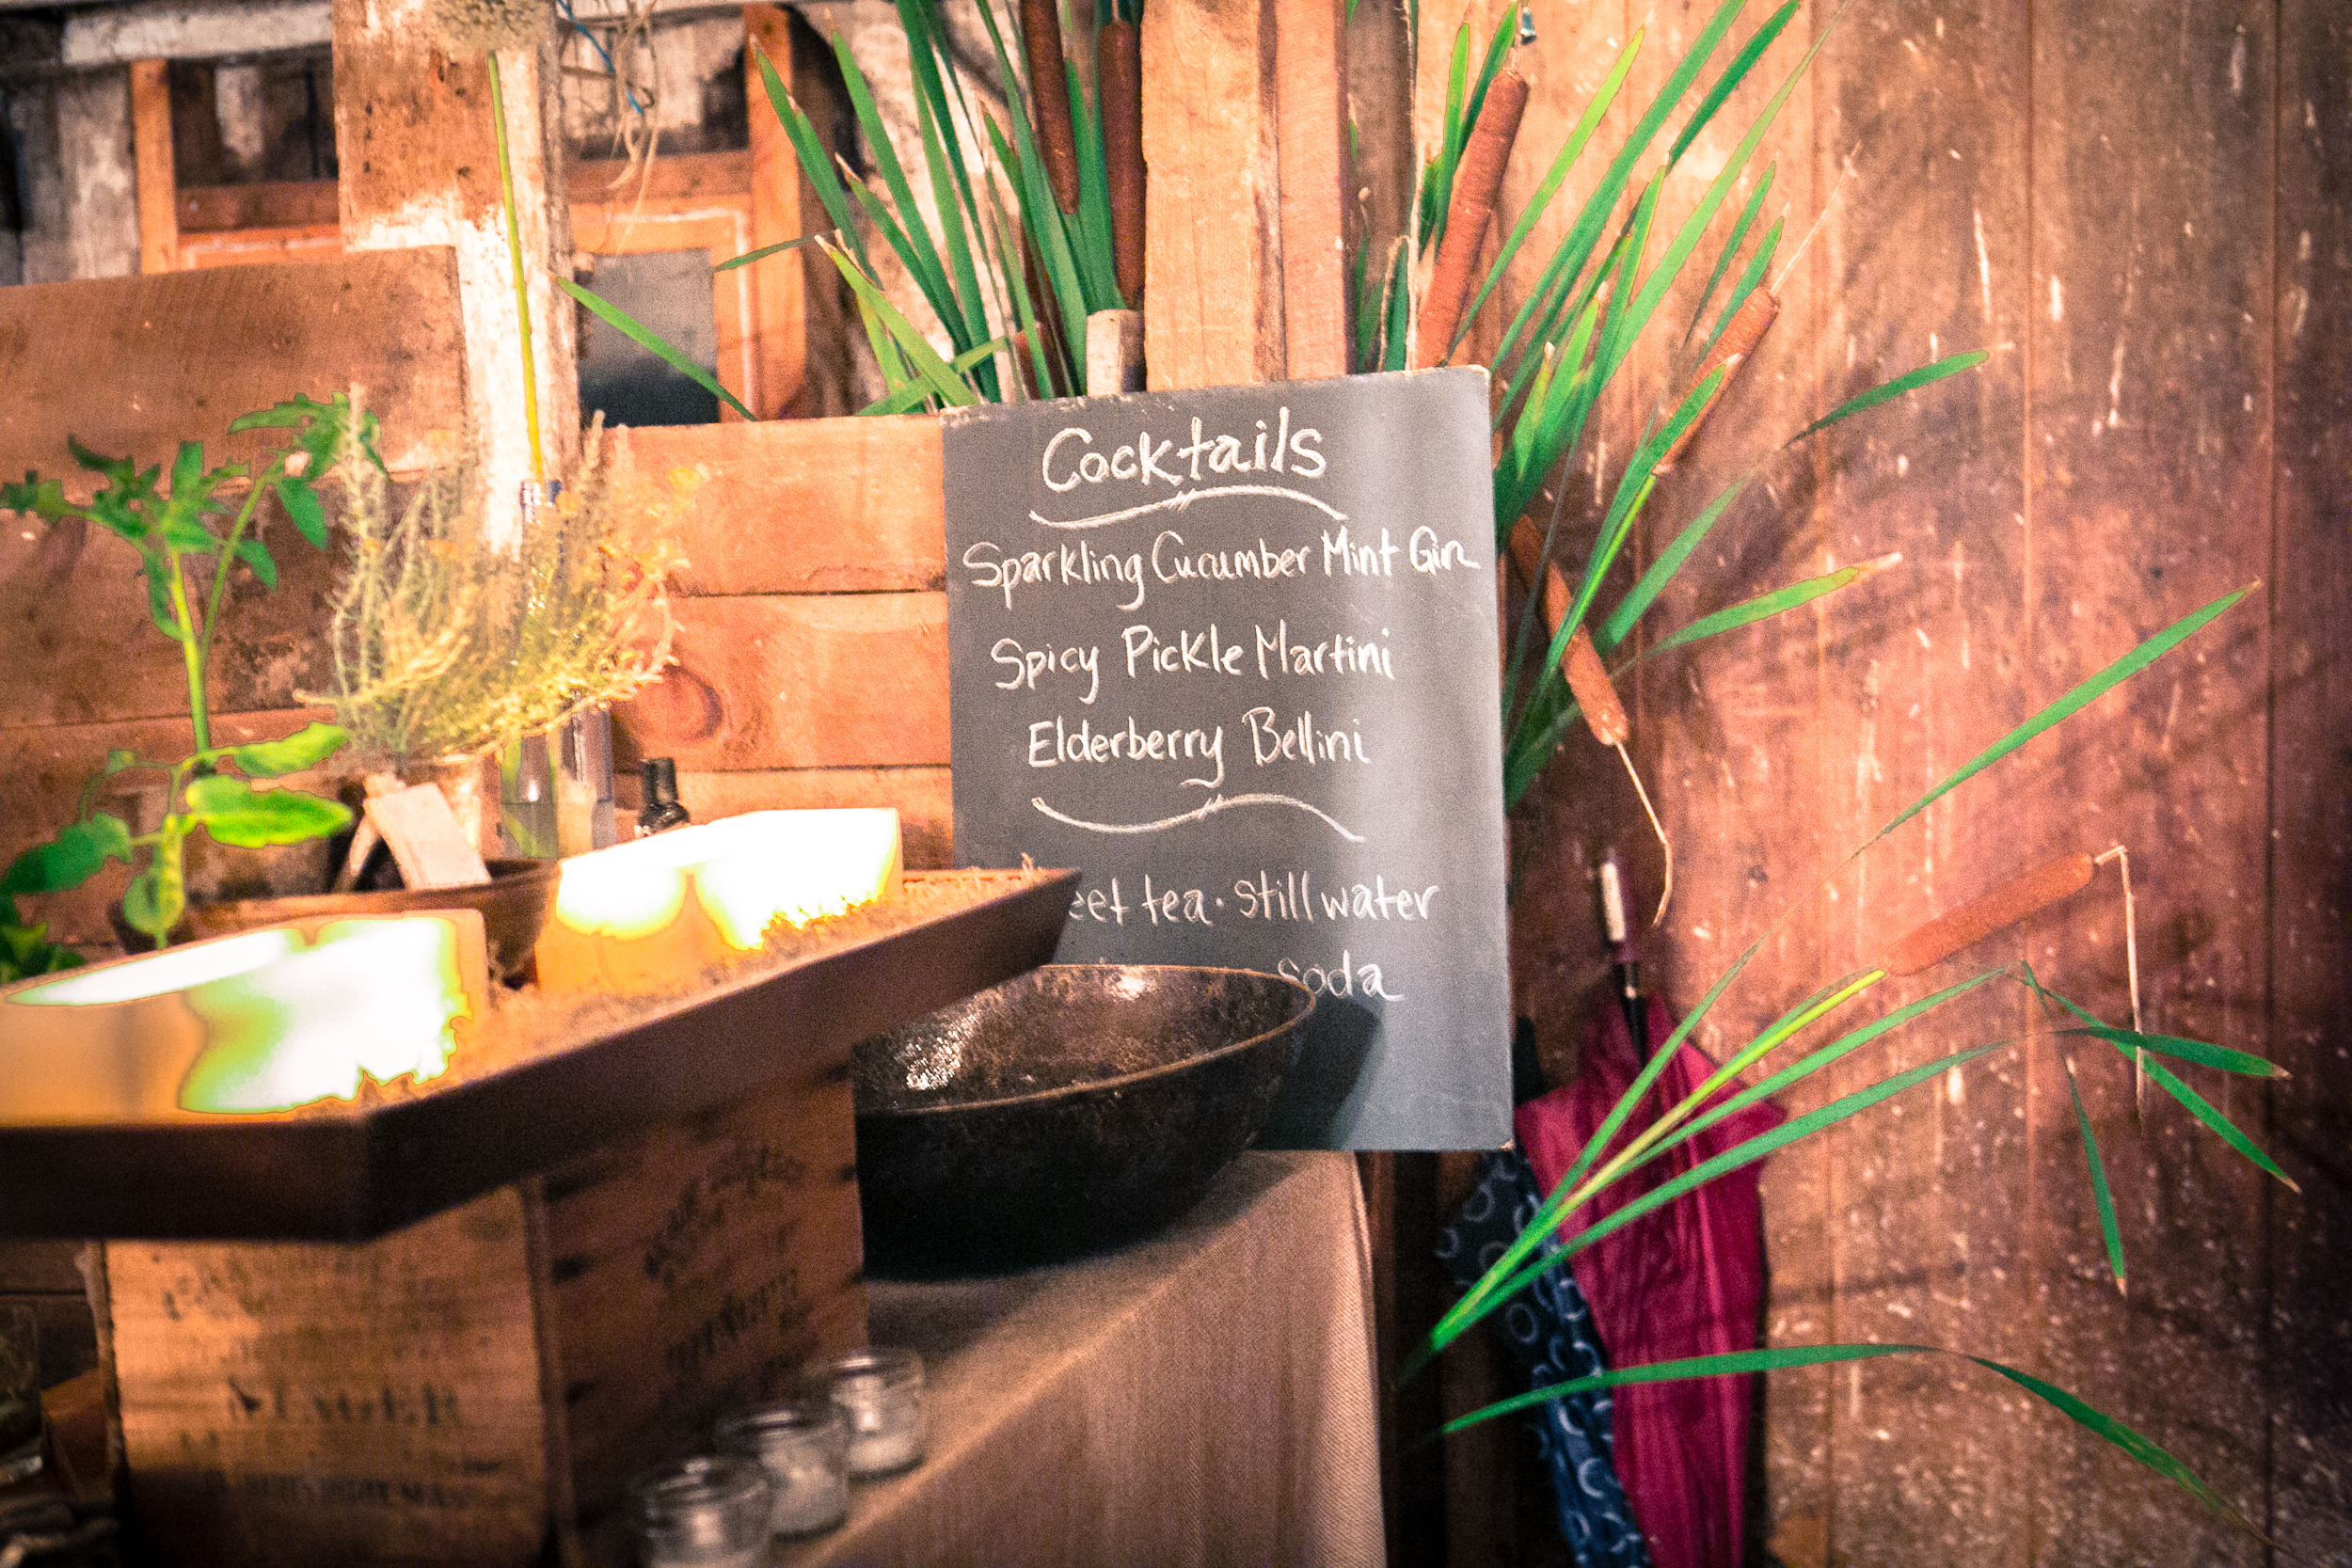 Cocktails
Sparkling Cucumber Mint Gin
Spicy Pickle Martini
Elderberry Bellini
tea · still water
soda